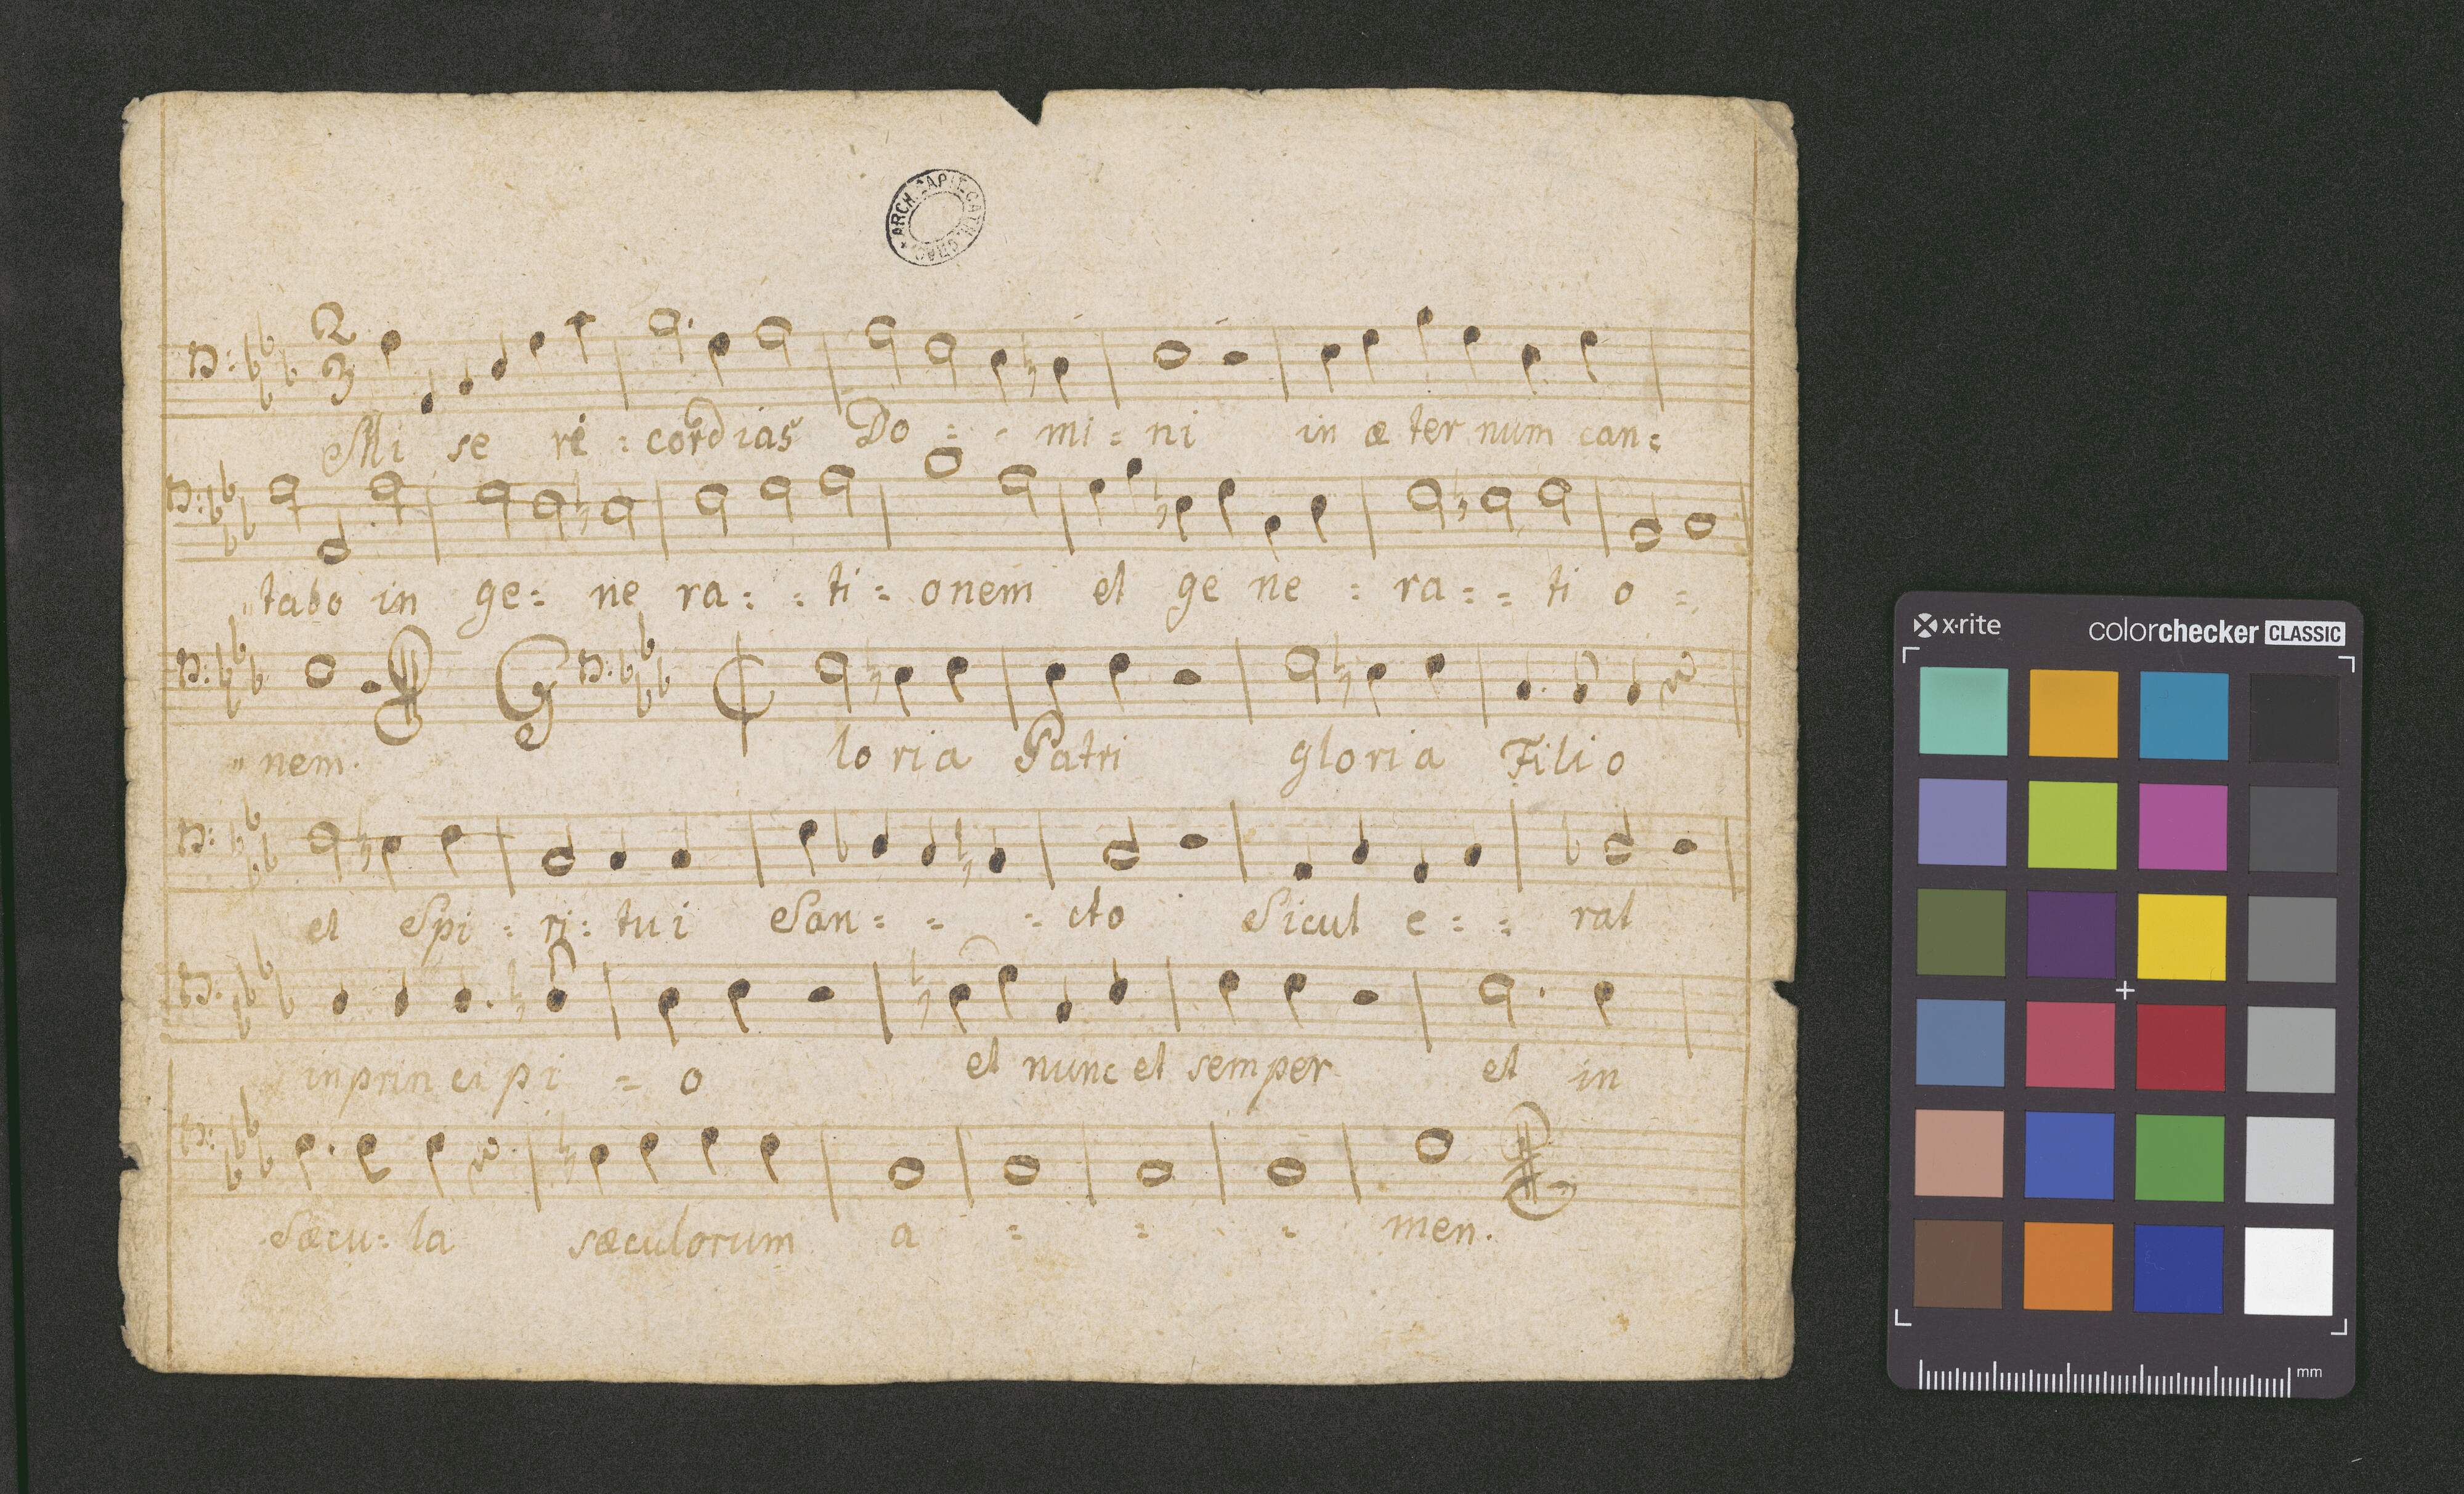 ARCH. CAPIT. CATH. CRAC.
2
3
Mi se re : cordias Do = - mi = ni in æ ter num can =
" tabo in ge = ne ra : : ti = onem et ge ne : ra = = ti o =
" nem. G lo ria Patri gloria Filio
et Spi : ri : tui San = = = cto Sicut e = = rat
in prin ci pi = o et nunc et semper et in
Sæcu = la sæculorum a = = = men.
x·rite colorchecker CLASSIC
mm